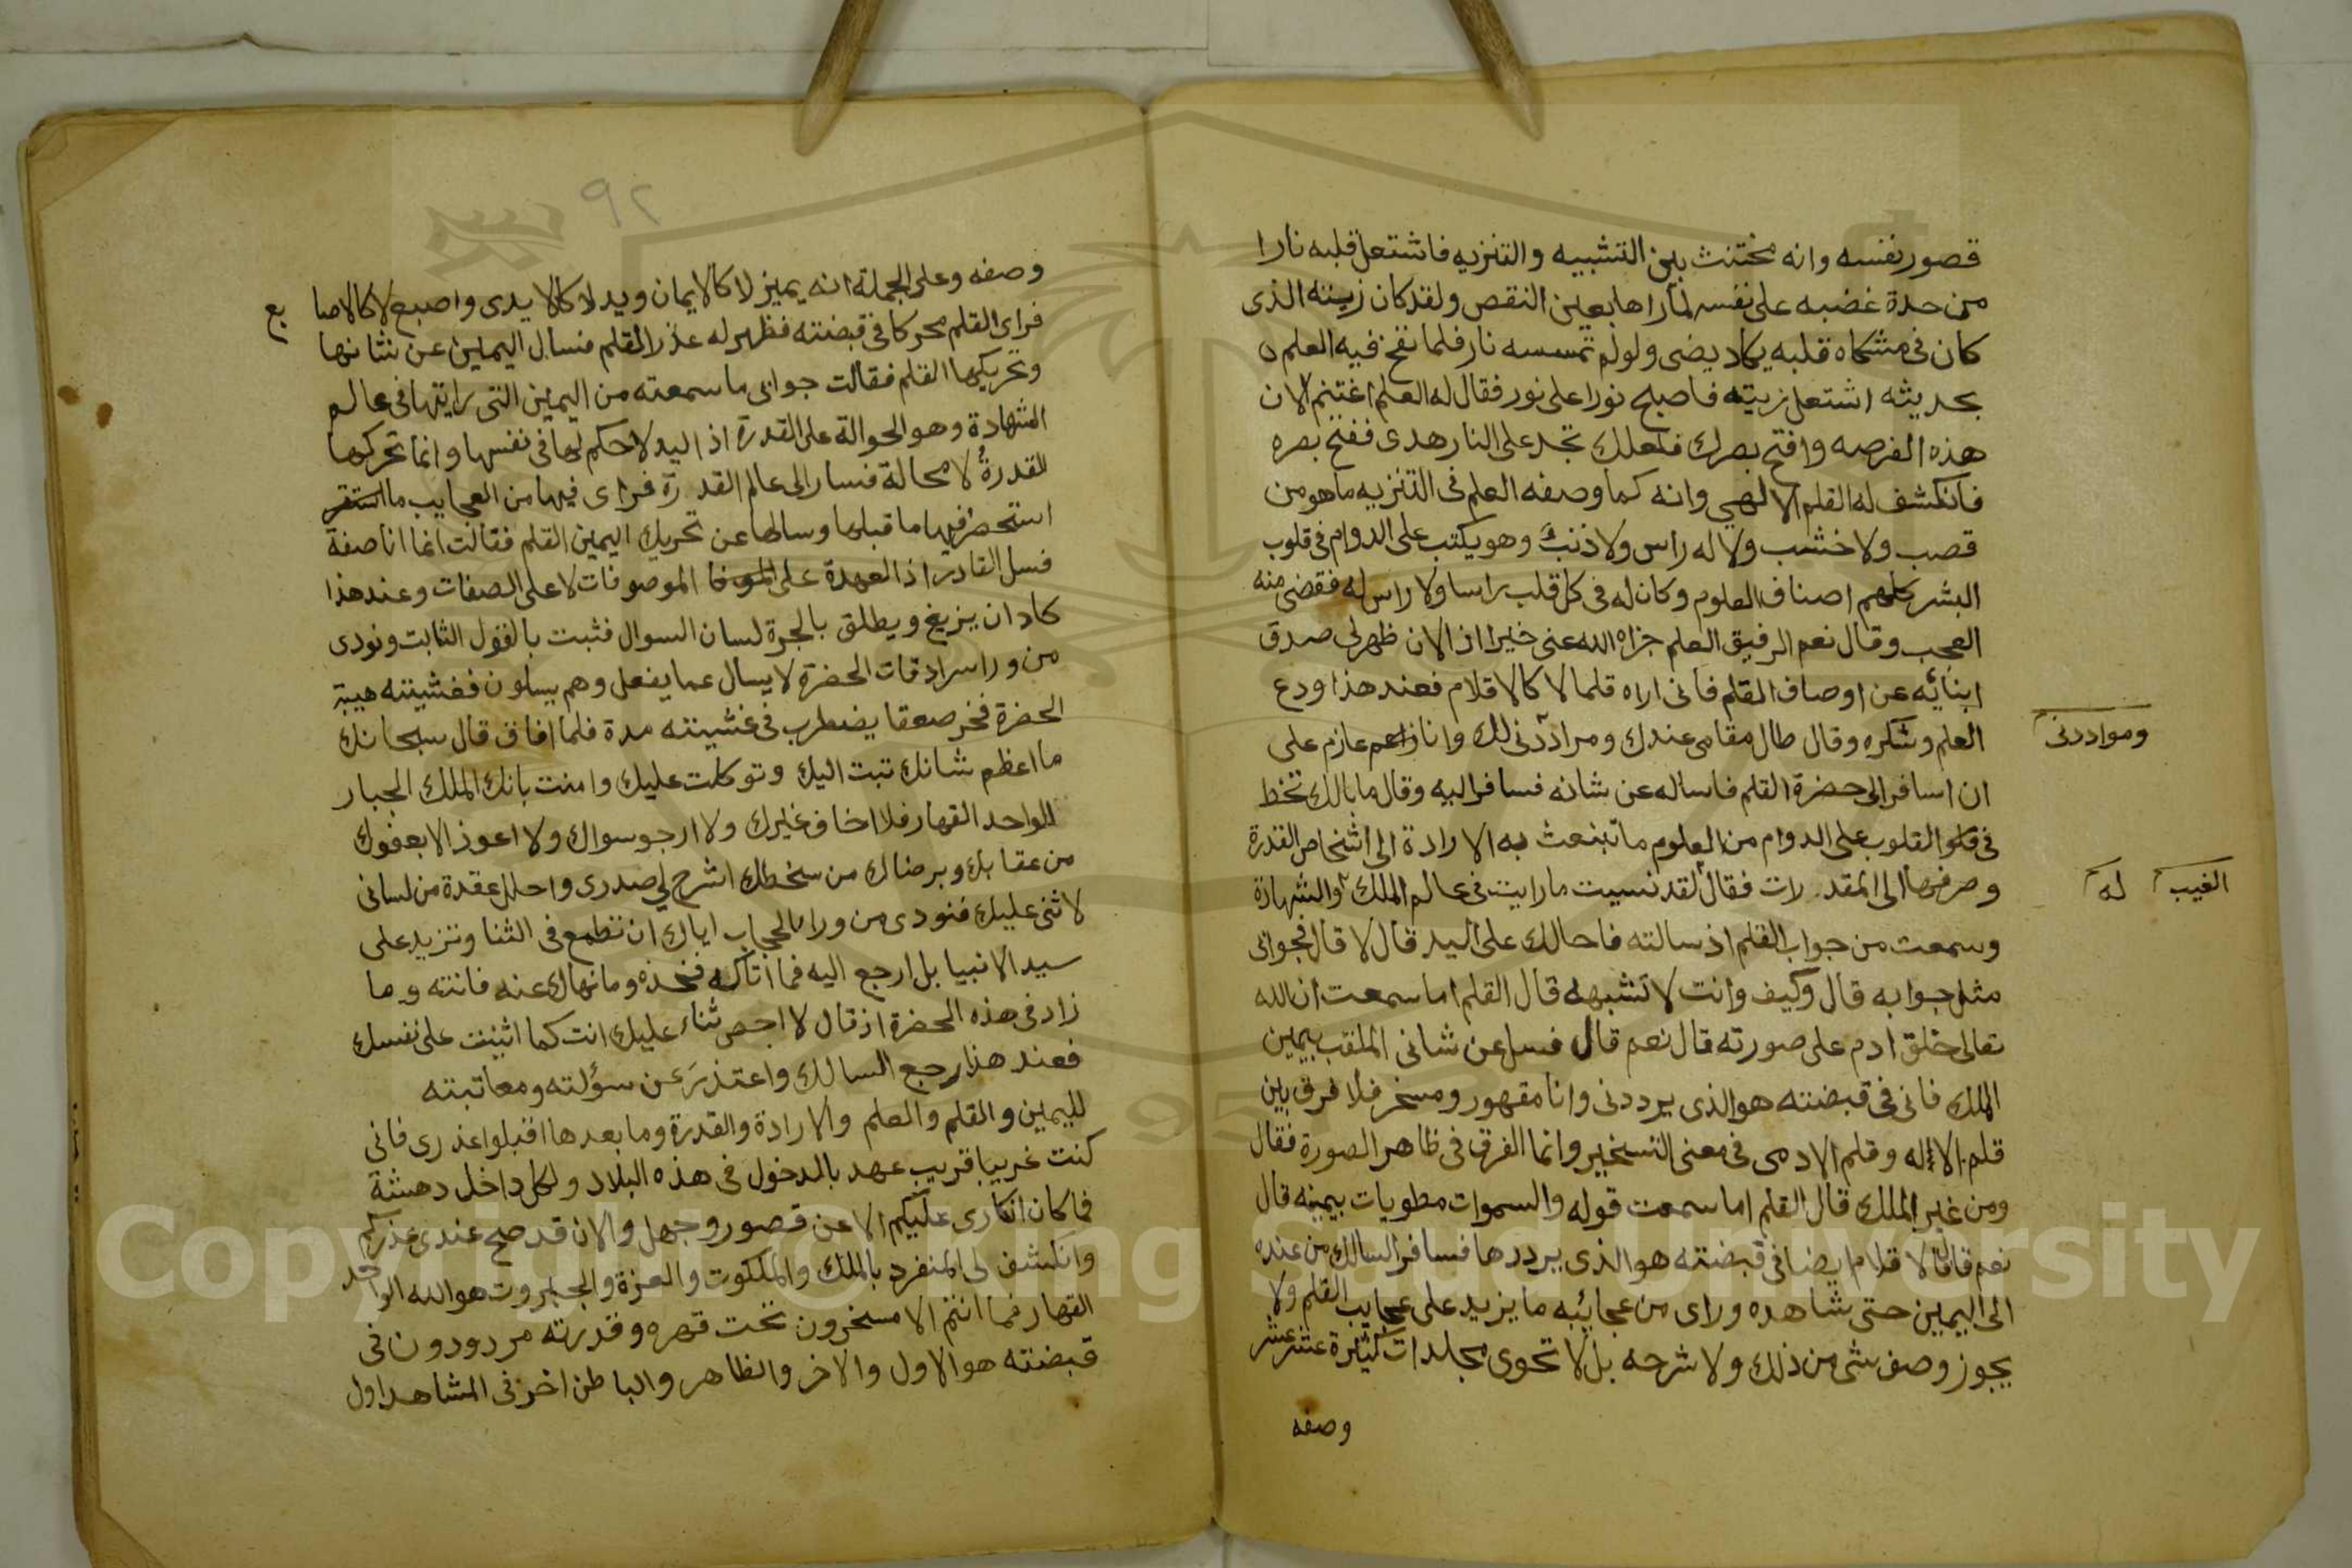 قصور نفسه وانه مختنث بين التشبيه والتنزيه فاشتعل قلبه نارا
من حدة غضبه على نفسه لما راها بعين النقص ولقد كان زيته الذى
كان فى مشكاه قلبه يكاد يضى ولو لم تمسسه نار فلما نفخ فيه العلم
بحديثه اشتعل زيته فاصبح نورا على نور فقال له العلم اغتنم الان
هذه الفرصه وافتح بصرك فلعلك تجد على النار هدى ففتح بصره
فانكشف له القلم الالهى وانه كما وصفه العلم فى التنزيه ما هو من
قصب ولا خشب ولا له راس ولا ذنب وهو يكتب على الدوام فى قلوب
البشر كلهم اصناف العلوم وكان له فى كل قلب راسا ولا راس له فقضى منه
العجب وقال نعم الرفيق العلم جزاه الله عنى خيرا اذ الان ظهر لى صدق
ابنائه عن اوصاف القلم فانى اراه قلما لا كالاقلام فعند هذا ودع
العلم وشكره وقال طال مقامى عندك ومراددنى لك وانا عازم على
ومواددنى
ان اسافر الى حضرة القلم فاساله عن شانه فسافر اليه وقال ما بالك تخط
فى القلوب على الدوام من العلوم ما تبنعث به الارادة الى اشخاص القدرة
وصرفها الى المقدرات فقال لقد نسيت ما رايت فى عالم الملك والشهادة
الغيب له
وسمعت من جواب القلم اذ سالته فاحالك على اليد قال لا قال فجوابى
مثل جوابه قال وكيف وانت لا تشبهه قال القلم اما سمعت ان الله
تعالى خلق ادم على صورته قال نعم قال فسل عن شانى الملقب بيمين
الملك فانى فى قبضته هو الذى يرددنى وانا مقهور ومسخر فلا فرق بين
قلم الاله وقلم الادمى فى معنى التسخير وانما الفرق فى ظاهر الصورة فقال
ومن غير الملك قال القلم اما سمعت قوله والسموات مطويات بيمينه قال
نعم قال فالاقلام ايضا فى قبضته هو الذى يرددها فسافر السالك من عنده
الى اليمين حتى شاهده وراى من عجائبه ما يزيد على عجايب القلم ولا
يجوز وصف شى من ذلك ولا شرحه بل لا تحوى مجلدات كثيرة عشر عشر
وصفه
٩٢
وصفه وعلى الجملة انه يمين لا كالايمان ويد لا كالايدى واصبع لا كالاصابع
فراى القلم محركا فى قبضته فظهر له عذر القلم فسال اليمين عن شانها
وتحريكها القلم فقالت جوابى ما سمعته من اليمين التى رايتها فى عالم
الشهادة وهو الحوالة على القدرة اذ اليد لا حكم لها فى نفسها وانما تحركها
القدرة لا محالة فسار الى عالم القدرة فراى فيها من العجايب ما
استحضر فيها ما قبلها وسالها عن تحريك اليمين القلم فقالت انما انا صفة
فسل القادر اذ العهدة على الموصوفات لا على الصفات وعند هذا
كاد ان يزيغ ويطلق بالجرة لسان السوال فثبت بالقول الثابت ونودى
من ورا سرادقات الحضرة لا يسال عما يفعل وهم يسلون فغشيته هيبة
الحضرة فخر صعقا يضطرب فى غشيته مدة فلما افاق قال سبحانك
ما اعظم شانك تبت اليك وتوكلت عليك وامنت بانك الملك الجبار
الواحد القهار فلا اخاف غيرك ولا ارجو سواك ولا اعوذ الا بعفوك
من عقابك وبرضاك من سخطك اشرح لى صدرى واحلل عقدة من لسانى
لاثنى عليك فنودى من ورا الحجاب اياك ان تطمع فى الثنا وتزيد على
سيد الانبيا بل ارجع اليه فما اتاك فخذه وما نهاك عنه فانته وما
زاد فى هذه الحضرة اذ قال لا احص ثناء عليك انت كما اثنيت على نفسك
فعند هذا رجع السالك واعتذر عن سؤلته ومعاتبته
لليمين والقلم والعلم والارادة والقدرة وما بعدها اقبلوا عذرى فانى
كنت غريبا قريب عهد بالدخول فى هذه البلاد ولكل داخل دهشة
فما كان انكارى عليكم الا عن قصور وجهل والان قد صح عندى عذركم
وانكشف لى المنفرد بالملك والملكوت والعزة والجبروت هو الله الواحد
القهار فما انتم الا مسخرون تحت قهره وقدرته مردودون فى
قبضته هو الاول والاخر والظاهر والباطن اخر فى المشاهد اول
Copyright © King Saud University